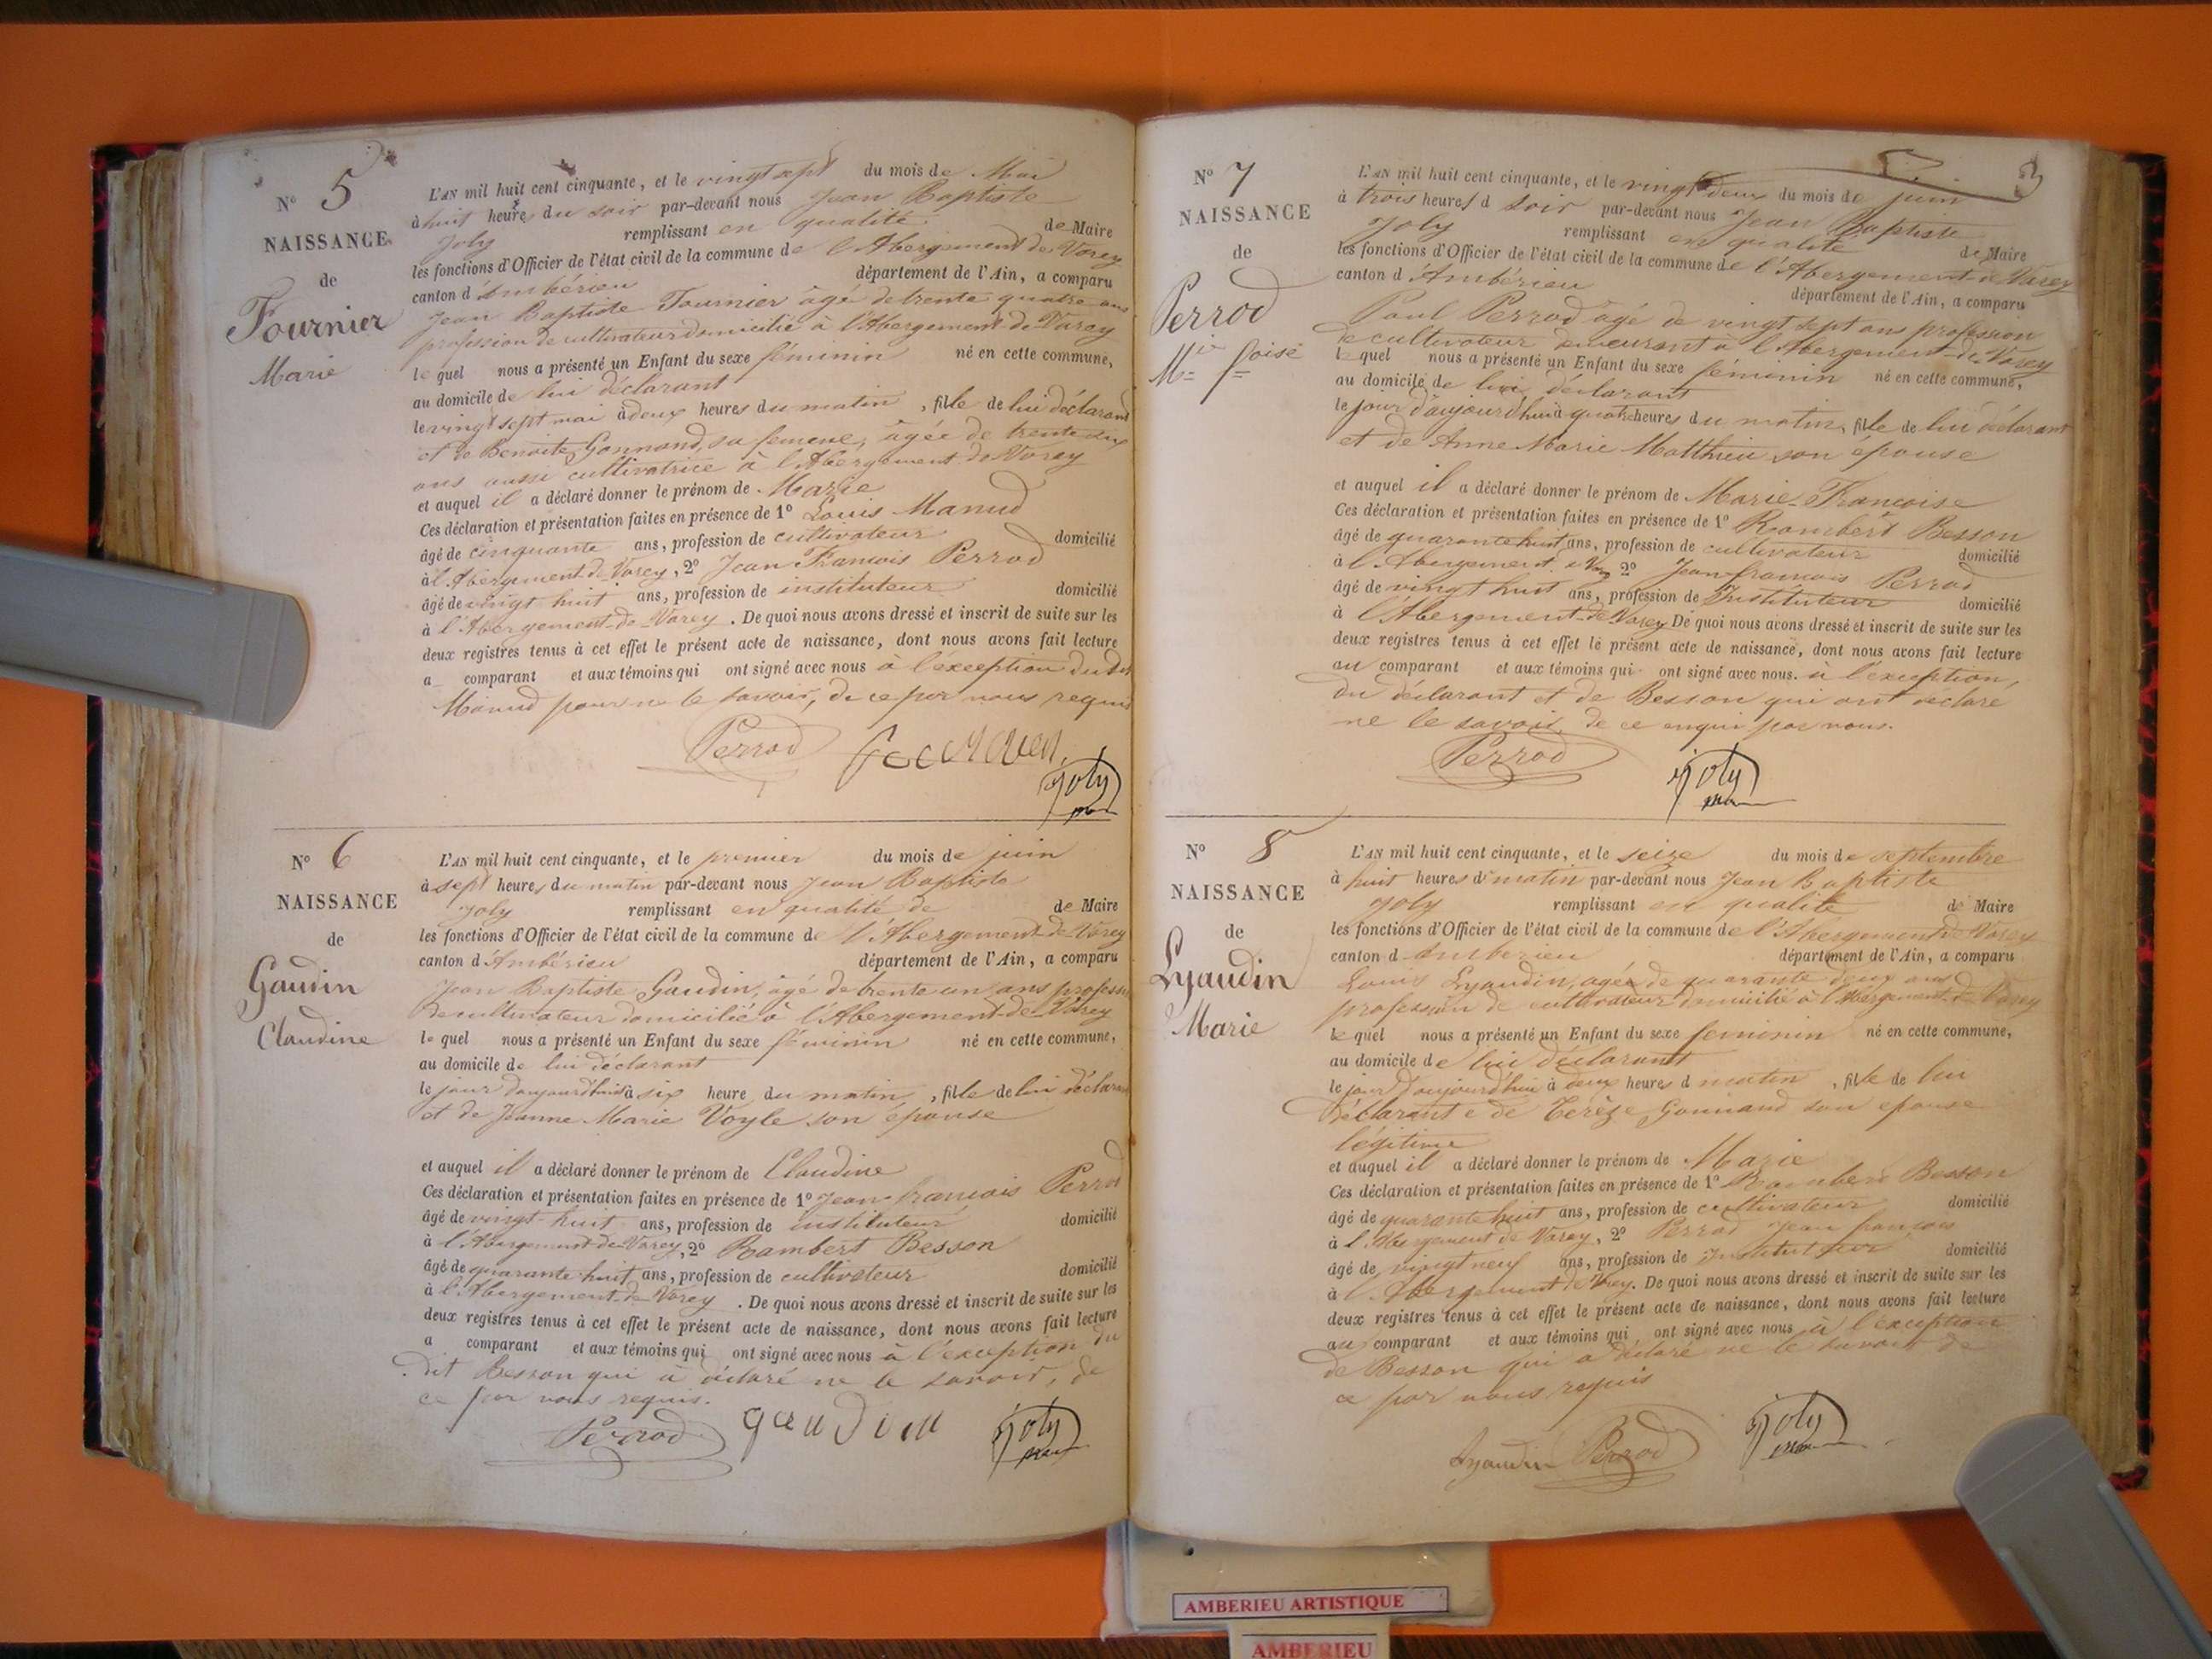 N° 5
NAISSANCE
de
Fournier
Marie
L'AN mil huit cent cinquante, et le vingt sept du mois de Mai
à huit heures du soir par-devant nous Jean Baptiste
Joly remplissant en qualité de Maire
les fonctions d'Officier de l'état civil de la commune de l'Abergement de Varey
canton d'Ambérieu département de l'Ain, a comparu
Jean Baptiste Fournier âgé de trente quatre ans
profession de cultivateur domicilié à l'Abergement de Varey
lequel nous a présenté un Enfant du sexe féminin né en cette commune,
au domicile de lui déclarant
le vingt sept mai à deux heures du matin, fille de lui déclarant
et de Benoite Gonnand, sa femme, âgée de trente six
ans aussi cultivatrice à l'Abergement de Varey
et auquel il a déclaré donner le prénom de Marie
Ces déclaration et présentation faites en présence de 1° Louis Manud
âgé de cinquante ans, profession de cultivateur domicilié
à l'Abergement de Varey, 2° Jean François Perrod
âgé de vingt huit ans, profession de instituteur domicilié
à l'Abergement-de-Varey. De quoi nous avons dressé et inscrit de suite sur les
deux registres tenus à cet effet le présent acte de naissance, dont nous avons fait lecture
a comparant et aux témoins qui ont signé avec nous à l'exception du dit
Manud pour ne le savoir, de ce par nous requis
Perrod
Joly
N° 6
NAISSANCE
de
Gaudin
Claudine
L'AN mil huit cent cinquante, et le premier du mois de juin
à sept heures du matin par-devant nous Jean Baptiste
Joly remplissant en qualité de de Maire
les fonctions d'Officier de l'état civil de la commune de l'Abergement-de-Varey
canton d'Ambérieu département de l'Ain, a comparu
Jean Baptiste Gaudin, âgé de trente un ans profession
de cultivateur domicilié à l'Abergement-de-Varey
lequel nous a présenté un Enfant du sexe féminin né en cette commune,
au domicile de lui déclarant
le jour d'aujourd'hui à six heure du matin, fille de lui déclarant
et de Jeanne Marie Voyle son épouse
et auquel il a déclaré donner le prénom de Claudine
Ces déclaration et présentation faites en présence de 1° Jean-françois Perrod
âgé de vingt-huit ans, profession de instituteur domicilié
à l'Abergement-de-Varey, 2° Rambert Besson
âgé de quarante huit ans, profession de cultivateur domicilié
à l'Abergement-de-Varey. De quoi nous avons dressé et inscrit de suite sur les
deux registres tenus à cet effet le présent acte de naissance, dont nous avons fait lecture
a comparant et aux témoins qui ont signé avec nous à l'exception du
dit Besson qui a déclaré ne le savoir, de
ce par nous requis.
Perrod gaudin Joly
N° 7
NAISSANCE
de
Perrod
Mie foise
L'AN mil huit cent cinquante, et le vingt deux du mois de juin
à trois heures d soir par-devant nous Jean Baptiste
Joly remplissant en qualité de Maire
les fonctions d'Officier de l'état civil de la commune de l'Abergement-de-Varey
canton d'Ambérieu département de l'Ain, a comparu
Paul Perrod âgé de vingt sept ans profession
de cultivateur demeurant à l'Abergement-de-Varey
lequel nous a présenté un Enfant du sexe féminin né en cette commune,
au domicile de lui déclarant
le jour d'aujourd'hui à quatre heures du matin, fille de lui déclarant
et de Anne Marie Matthieu son épouse
et auquel il a déclaré donner le prénom de Marie-Françoise
Ces déclaration et présentation faites en présence de 1° Rambert Besson
âgé de quarante huit ans, profession de cultivateur domicilié
à l'Abergement de Varey 2° Jean-françois Perrod
âgé de vingt huit ans, profession de Instituteur domicilié
à l'Abergement-de-Varey De quoi nous avons dressé et inscrit de suite sur les
deux registres tenus à cet effet le présent acte de naissance, dont nous avons fait lecture
au comparant et aux témoins qui ont signé avec nous. à l'exception,
du déclarant et de Besson qui ont déclaré
ne le savoir de ce enqui par nous.
Perrod Joly
N° 8
NAISSANCE
de
Lyaudin
Marie
L'AN mil huit cent cinquante, et le seize du mois de septembre
à huit heures d matin par-devant nous Jean Baptiste
Joly remplissant en qualité de Maire
les fonctions d'Officier de l'état civil de la commune de l'Abergement de Varey
canton d Amberieu département de l'Ain, a comparu
Louis Lyaudin, agée de quarante deux ans
profession de cultivateur domicilié à l'Abergement de Varey
lequel nous a présenté un Enfant du sexe feminin né en cette commune,
au domicile de lui déclarant
le jour d'aujourd'hui à deux heures d matin, fille de lui
déclarant e de Terèze Gonnand son epouse
légitime
et auquel il a déclaré donner le prénom de Marie
Ces déclaration et présentation faites en présence de 1° Rambert Besson
âgé de quarante huit ans, profession de cultivateur domicilié
à l'Abergement de Varey, 2° Perrod Jean françois
âgé de vingt neuf ans, profession de Instituteur domicilié
à l'Abergement de Varey. De quoi nous avons dressé et inscrit de suite sur les
deux registres tenus à cet effet le présent acte de naissance, dont nous avons fait lecture
au comparant et aux témoins qui ont signé avec nous à l'exception
de Besson qui a déclaré ne le savoir de
ce par nous requis
Lyaudin Perrod Joly
AMBERIEU ARTISTIQUE
AMBERIEU